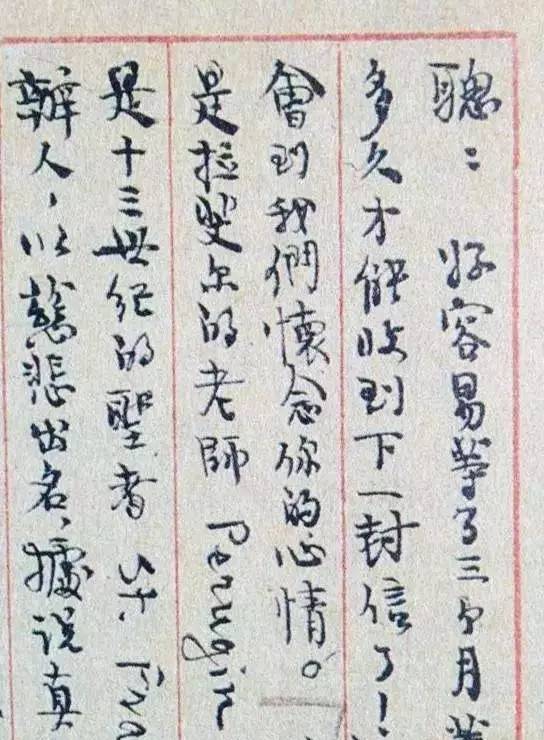 聰：　好容易等了三个月等
多久才能收到下一封信了！
會到我們懷念你的心情。
是拉斐尔的老師
是十三世纪的聖者 St.
辦人，以慈悲出名，據说真